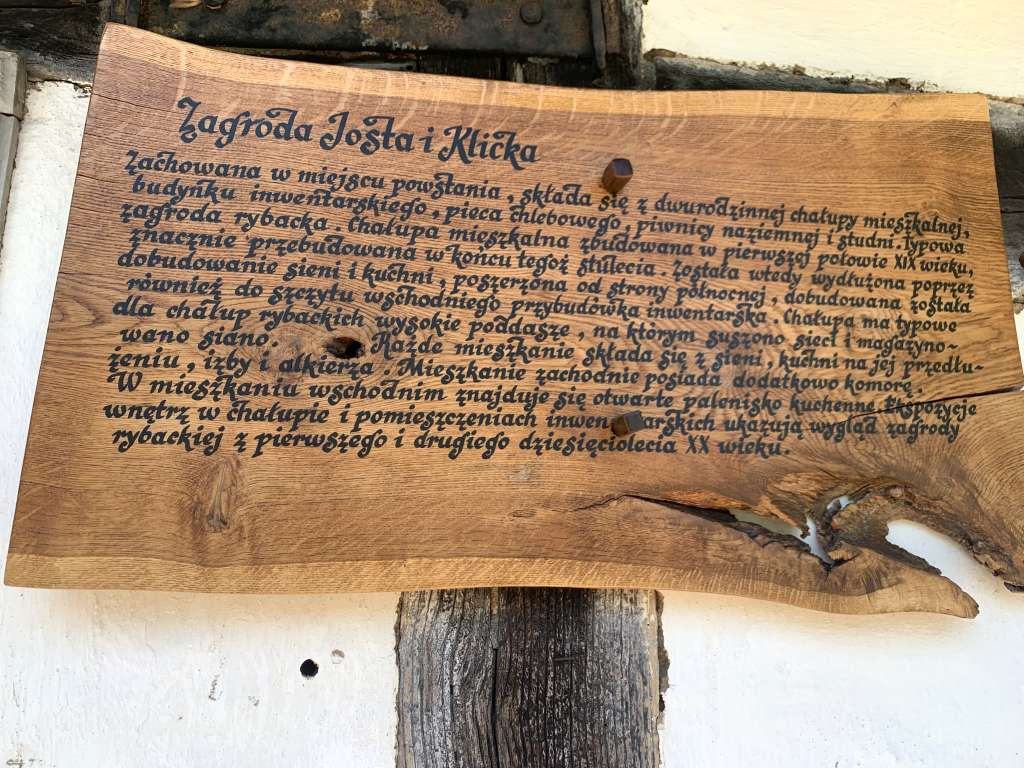 Zagroda Josta i Klicka
Zachowana w miejscu powstania, składa się z dwurodzinnej chałupy mieszkalnej,
budynku inwentarskiego, pieca chlebowego, piwnicy naziemnej i studni. Typowa
zagroda rybacka. Chałupa mieszkalna zbudowana w pierwszej połowie XIX wieku,
znacznie przebudowana w końcu tegoż stulecia. Została wtedy wydłużona poprzez
dobudowanie sieni i kuchni, poszerzona od strony północnej, dobudowana została
również do szczytu wschodniego przybudówka inwentarska. Chałupa ma typowe
dla chałup rybackich wysokie poddasze, na którym suszono sieci i magazyno-
wano siano. Każde mieszkanie składa się z sieni, kuchni na jej przedłu-
żeniu, izby i alkierza. Mieszkanie zachodnie posiada dodatkowo komorę.
W mieszkaniu wschodnim znajduje się otwarte palenisko kuchenne. Ekspozycje
wnętrz w chałupie i pomieszczeniach inwentarskich ukazują wygląd zagrody
rybackiej z pierwszego i drugiego dziesięciolecia XX wieku.